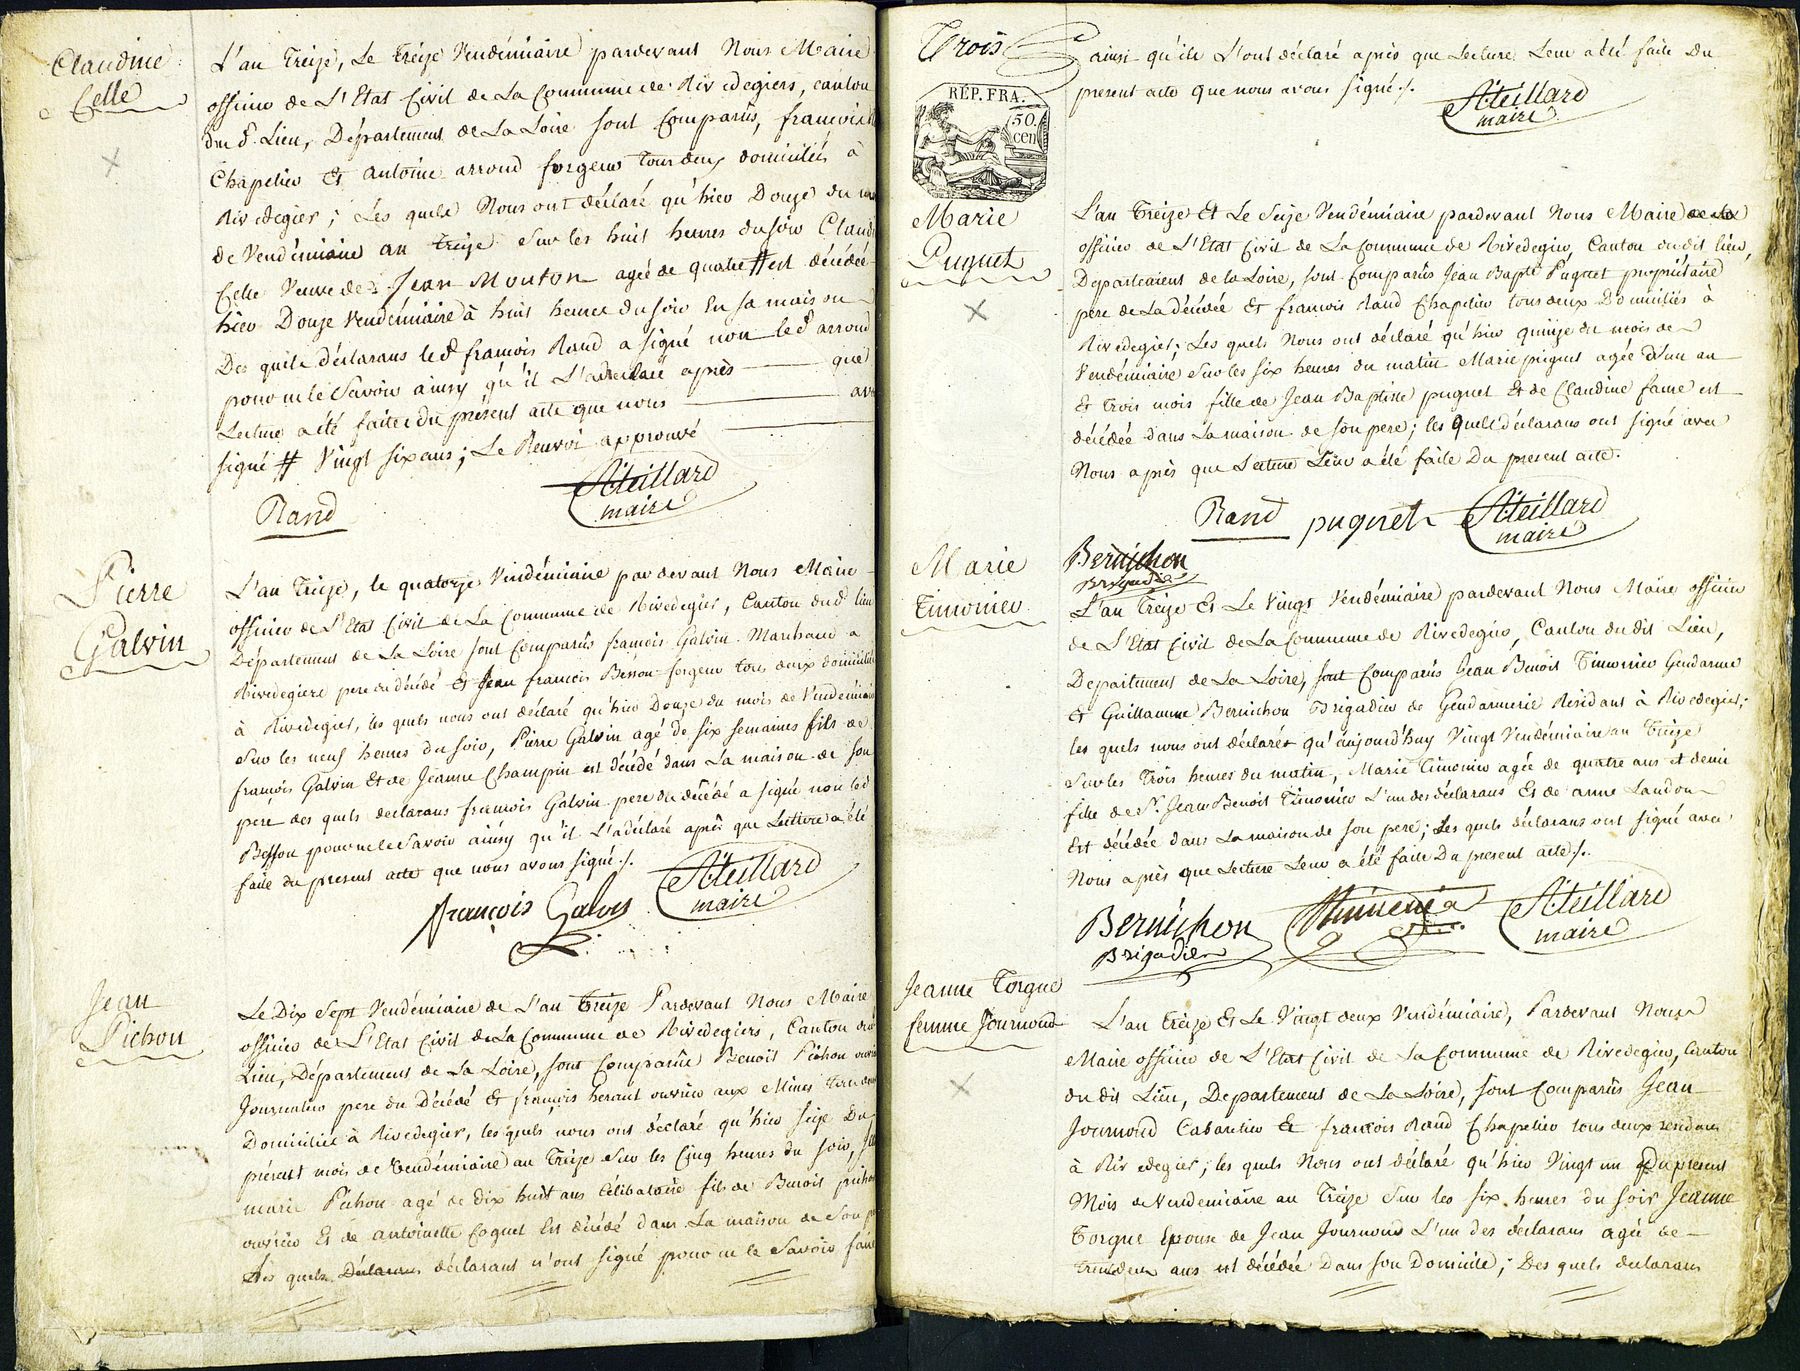 Claudine
Celle
L'an treize, Le treize Vendémiaire pardevant Nous Maire
officier de L'Etat Civil de La Commune de Rivedegiers, canton
du d. Lieu, Département de La Loire sont Comparûs, francois
Chapelier Et antoine arroud forgeur tous deux domiciliés à
Rivedegier; Les quels Nous ont déclaré qu'hier Douze du
de Vendémiaire an treize Sur les huit heures du soir Claud
Celle Veuve de Jean Mouton agée de quatre # est décédée
hier Douze Vendémiaire à huit heures du soir En sa maison
Des quels déclarans led francois Rand a signé non led arroud
pour ne le Savoir ainsy qu'il L'a déclaré après que
Lecture a été faite du présent acte que nous av
signé # Vingt six ans; Le Renvoi approuvé
Rand
A: teillard
maire
Pierre
Galvin
L'an treize, le quatorze Vendémiaire par devant Nous Maire
officier de L'Etat Civil de La Commune de Rivedegier, Canton du d. lieu
Département de La Loire sont Comparûs francois Galvin Marchand a
Rivedegiers pere du décédé Et Jean francois Besson forgeur tous deux domiciliés
à Rivedegier, les quels nous ont déclaré qu'hier Douze du mois de Vendémiaire
Sur les neuf heures du soir, Pierre Galvin agé de six semaines fils de
françois Galvin Et de Jeanne Champin est décédé dans La maison de son
pere des quels declarans francois Galvin pere du décédé a signé non led
Besson pour ne le Savoir ainsy qu'il L'a déclaré après que Lecture a été
faite du present acte que nous avons signé ./.
françois Galvin
A: teillard
maire
Jean
Pichon
Le Dix Sept Vendémiaire de L'an treize Pardevant Nous Maire
officier de L'Etat Civil de La Commune de Rivedegiers, Canton du d
Lieu, Département de La Loire, sont Comparûs Benoit Pichon
Journalier pere du Décédé Et françois heraut ouvrier aux Mines tous deux
Domiciliés à Rivedegier, les quels nous ont déclaré qu'hier seize Du
présent mois de Vendémiaire an treize Sur les Cinq heures du soir,
marie Pichon agé de dix huit ans Célibataire fils de Benoit pichon
ouvrier Et de antoinette Coquet Est décédé dans La maison de Son
Des quels déclarans n'ont signé pour ne le Savoir faire
Trois
RÉP. FRA.
50.
cen
ainsi qu'ils L'ont déclaré après que Lecture Leur a été faite Du
present acte que nous avons signé ./.
A: teillard
maire
Marie
Puguet
L'an treize Et Le Seize Vendémiaire pardevant Nous Maire
officier de L'Etat Civil de La Commune de Rivedegier, Canton du dit lieu,
Departement de la Loire, sont Comparûs Jean Bapte Puguet propriétaire
pere de La décédée Et francois Rand Chapelier tous deux Domiciliés à
Rivedegier; Les quels Nous ont déclaré qu'hier quinze du mois de
Vendémiaire Sur les six heures du matin Marie puguet agée d'un an
Et trois mois fille de Jean Baptiste puguet Et de Claudine faure est
décédée dans La maison de son pere; les quels déclarans ont signé avec
Nous après que Lecture Leur a été faite Du present acte.
Rand puguet A: teillard
maire
Marie
Timonier
Bernichon
Brigadier
L'an treize Et Le Vingt Vendémiaire pardevant Nous Maire officier
de L'Etat Civil de La Commune de Rivedegier, Canton du dit Lieu,
Departement de La Loire, sont Comparûs Jean Benoit Timonier Gendarme
Et Guillaume Bernichon Brigadier de Gendarmerie Residans à Rivedegier;
les quels nous ont déclarés qu'aujourd'huy Vingt Vendémiaire an treize
Sur les Trois heures du matin, Marie Timonier agée de quatre ans et demi
fille de Sr. Jean Benoit Timonier L'un des déclarans Et de anne Laudon
Est décédée dans La maison de son pere; Les quels déclarans ont signé avec
Nous après que Lecture Leur a été faite Du present acte ./.
Bernichon
Brigadier
A: teillard
maire
Jeanne Torgue
femme Journoud
L'an treize Et Le Vingt deux Vendémiaire, Pardevant Nous
Maire officier de L'Etat Civil de La Commune de Rivedegier, Canton
du dit Lieu, Departement de La Loire, sont Comparûs Jean
Journoud Cabaretier Et francois Rand Chapelier tous deux residans
à Rivedegier; les quels Nous ont déclaré qu'hier Vingt un Du present
Mois de Vendemiaire an treize Sur les six heures du soir Jeanne
Torgue Epouse de Jean Journoud L'un des déclarans agée de
trente deux ans est décédée Dans son Domicile; Des quels declarans